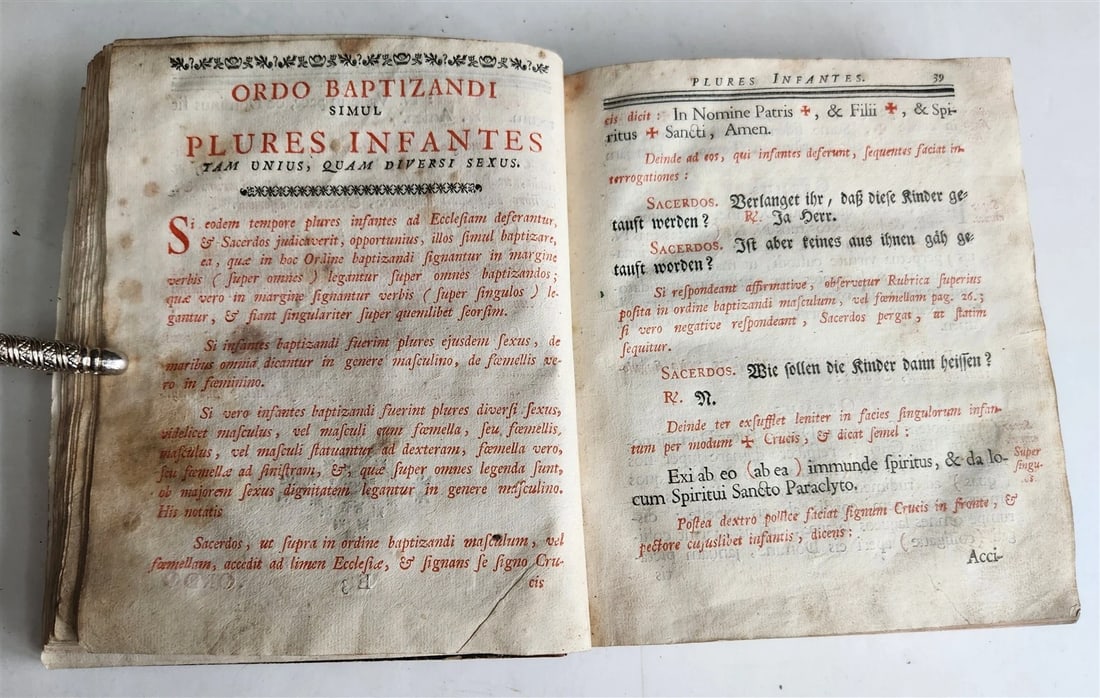 ORDO BAPTIZANDI
SIMUL
PLURES INFANTES
TAM UNIUS, QUAM DIVERSI SEXUS.
Si eodem tempore plures infantes ad Ecclesiam deferantur,
& Sacerdos judicaverit, opportunius, illos simul baptizare,
ea, quæ in hoc Ordine baptizandi signantur in margine
verbis ( super omnes ) legantur super omnes baptizandos;
quæ vero in margine signantur verbis ( super singulos ) le-
gantur, & fiant singulariter super quemlibet seorsim.
Si infantes baptizandi fuerint plures ejusdem sexus, de
maribus omnia dicantur in genere masculino, de fœmellis ve-
ro in fœminino.
Si vero infantes baptizandi fuerint plures diversi sexus,
videlicet masculus, vel masculi cum fœmella, seu fœmellis,
masculus, vel masculi statuantur ad dexteram, fœmella vero,
seu fœmellæ ad sinistram, &, quæ super omnes legenda sunt,
ob majorem sexus dignitatem legantur in genere masculino.
His notatis
Sacerdos, ut supra in ordine baptizandi masculum, vel
fœmellam, accedit ad limen Ecclesiæ, & signans se signo Cru-
cis
PLURES INFANTES. 39
cis dicit : In Nomine Patris ✠, & Filii ✠, & Spi-
ritus ✠ Sancti, Amen.
Deinde ad eos, qui infantes deferunt, sequentes faciat in-
terrogationes :
SACERDOS. Verlanget ihr, daß diese Kinder ge-
tauft werden? ℟. Ja Herr.
SACERDOS. Ist aber keines aus ihnen gäh ge-
tauft worden?
Si respondeant affirmative, observetur Rubrica superius
posita in ordine baptizandi masculum, vel fœmellam pag. 26.;
si vero negative respondeant, Sacerdos pergat, ut statim
sequitur.
SACERDOS. Wie sollen die Kinder dann heissen?
℟. N.
Deinde ter exsufflet leniter in facies singulorum infan-
tum per modum ✠ Crucis, & dicat semel :
Exi ab eo (ab ea) immunde spiritus, & da lo-
cum Spiritui Sancto Paraclyto.
Super
singu-
os.
Postea dextro pollice faciat signum Crucis in fronte, &
pectore cujuslibet infantis, dicens :
Acci-